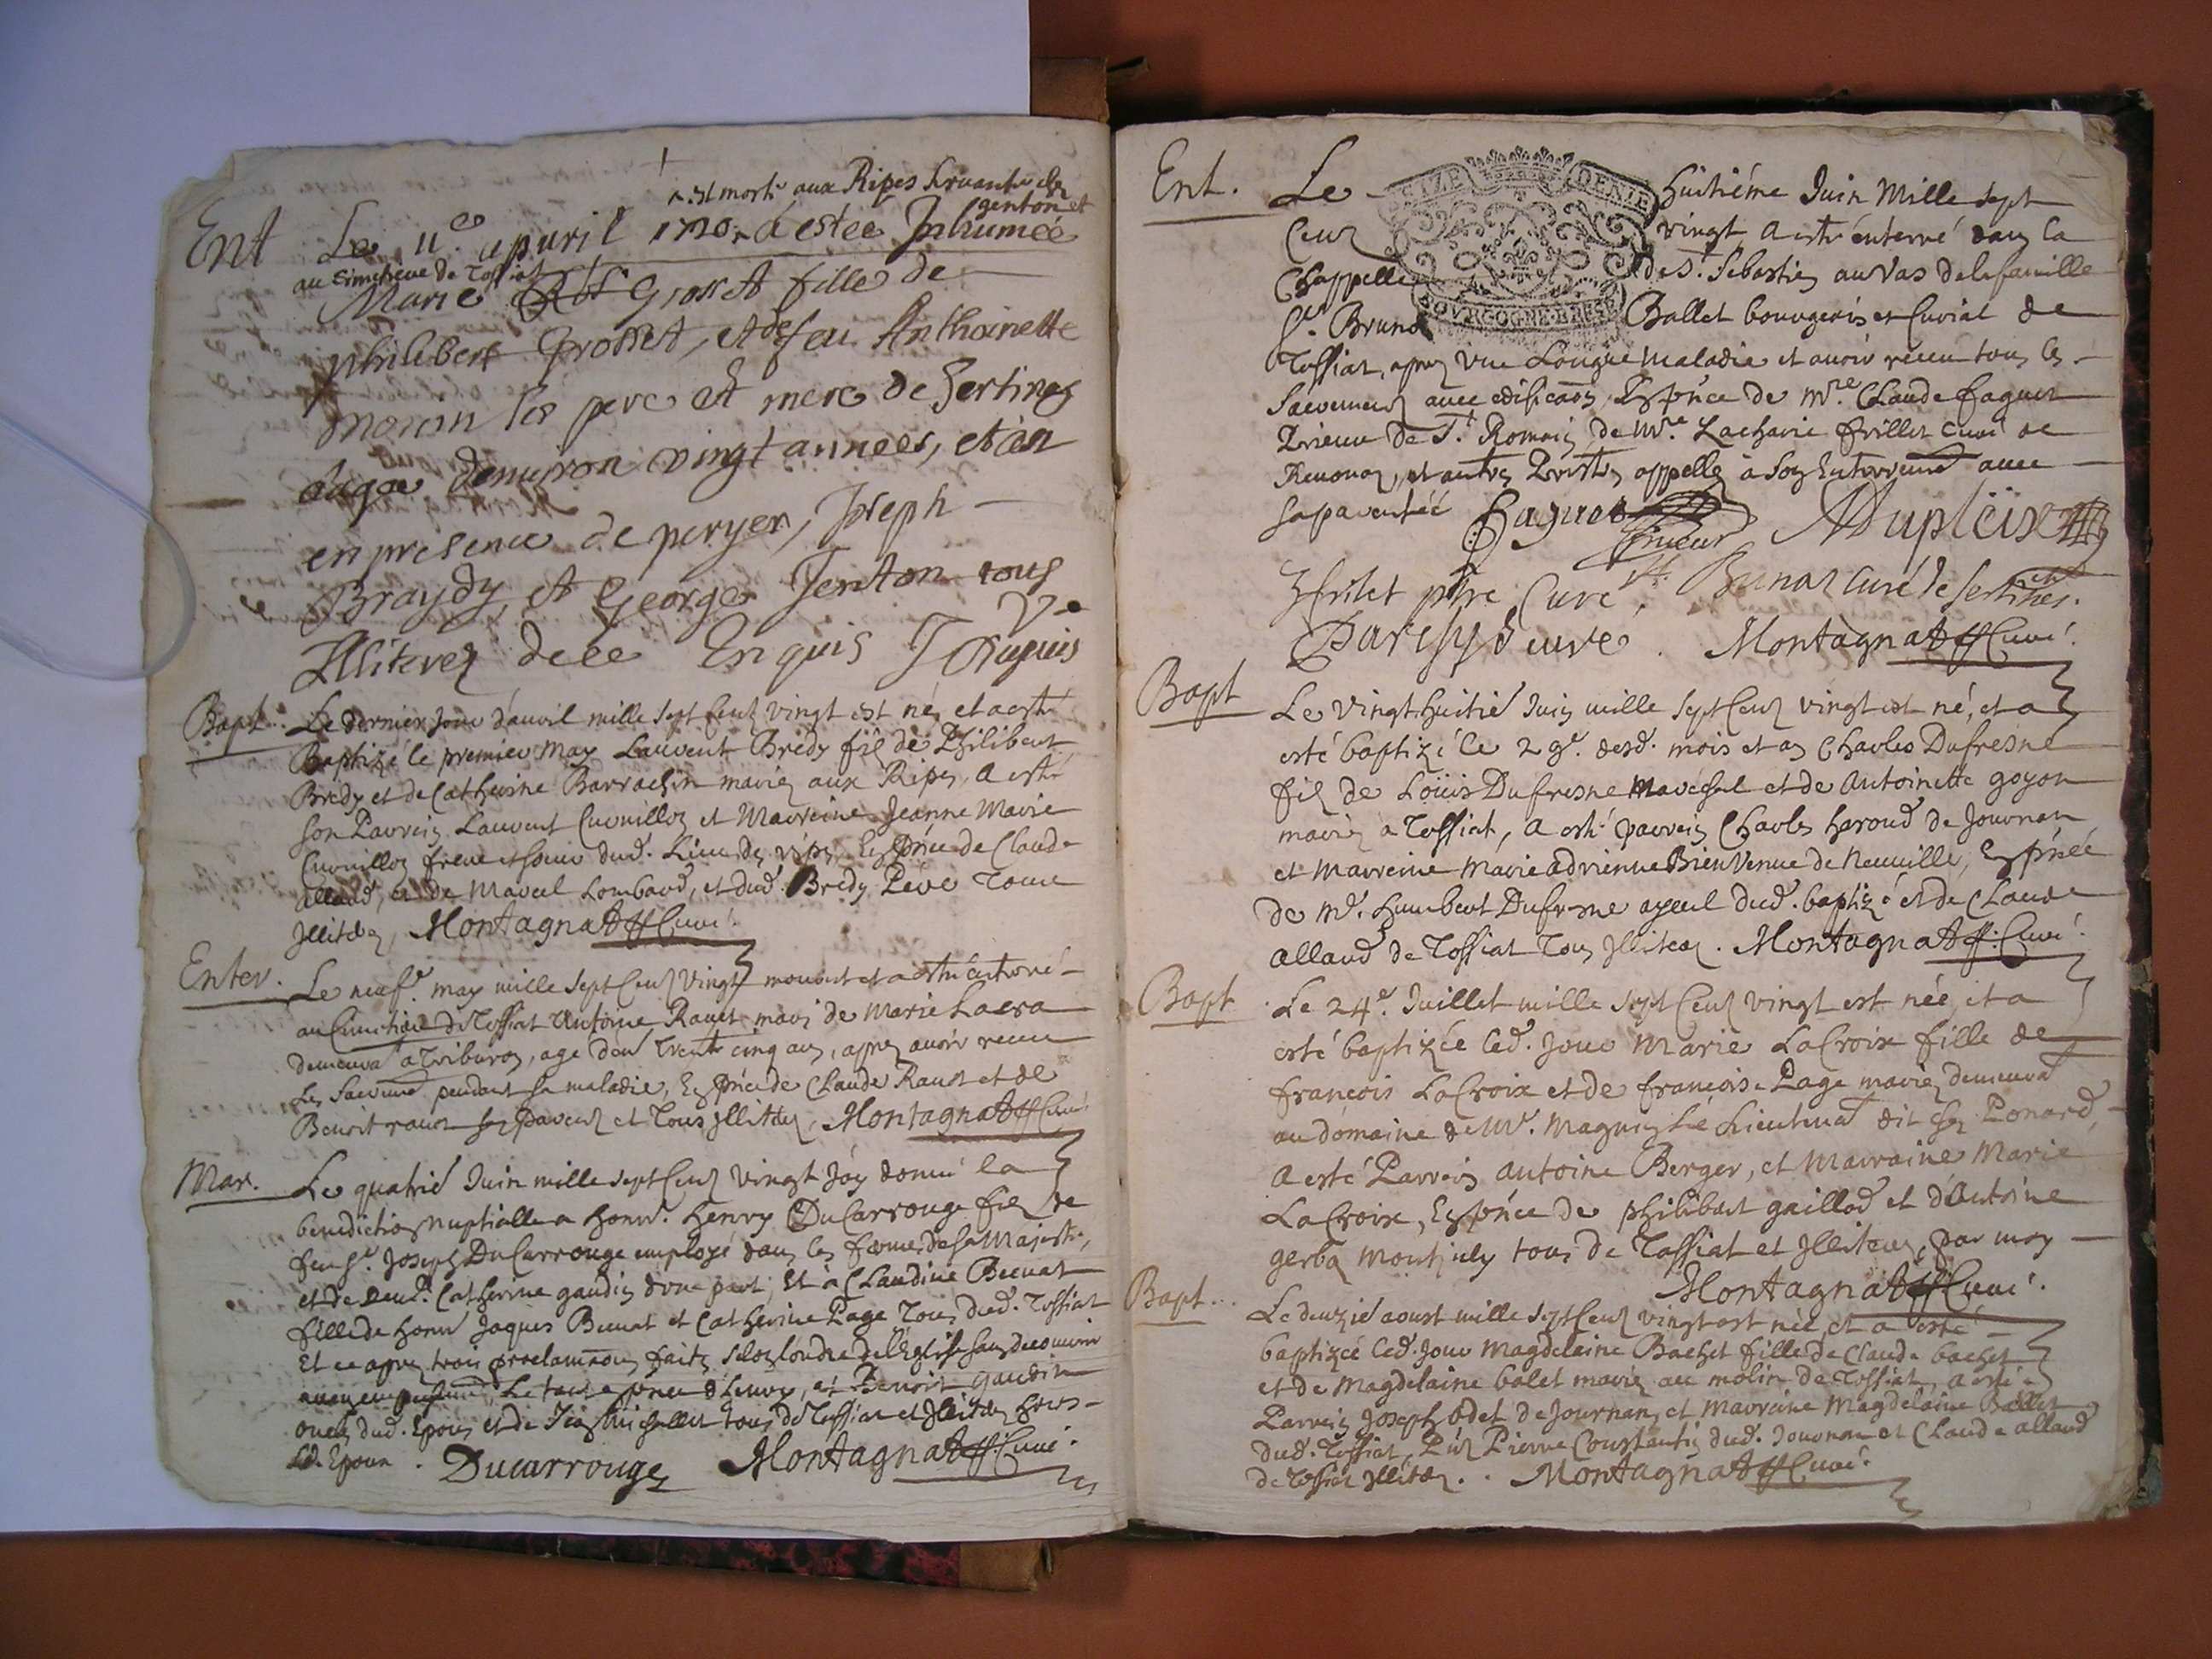 Ent Le 11e apvril 1720 ^ a estée Inhumée
^ est morte aux Ripes servante de genton et
au Simetiere de Tossiat
Marie Grosset fille de
philibert Grosset, et de feu Anthoinette
morin ses pere et mere de Sertines
âagée denviron vingt années, et an
en presence de Joseph
Braydy, et George Jenton tous
Illiterez de ce Enquis Dupuis
Bapt. Le dernier jour d'avril mille sept Cent vingt est né, et a esté
Baptizé le premier May Laurent Bredy fils de Philibert
Bredy et de Catherine Barrachin mariez aux Ripes, a esté
son Parrein Laurent Cuvuilloz et Marreine Jeanne Marie
Cuvuilloz frere et soeur dud. lieu des ripes, En pnce de Claude
allaud, et de Marcel Lombard, et dud. Bredy Pere Tous
Illitez, Montagnat Curé.
Enter. Le neufe. may mille sept Cent Vingt mourut et a esté enterré
au Cimetiere de Tossiat Antoine Ravet mari de Marie Lacra
demeurat a Triburoz, age d'env Trente cinq ans, apres avoir receu
Les Sacremt pendant sa maladie, En pnce de Claude Ravet et de
Benoit ravet ses Parens et Tous Illitez, Montagnat Curé
Mar. Le quatrie Juin mille sept Cent Vingt J'ay donné la
benediction nuptialle a honor. Henry DuCarrouge fils de
feu Sr. Joseph DuCarrouge employé dans les fermes de sa Majesté,
et de Catherine gaudin d'une part, Et à Claudine Bernat
fille de honor Jaques Bernat et Catherine Page Tous dud. Tossiat
Et ce apres trois proclamaons faites selon l'ordre de l'Eglise sans decouvrir
aucun, Le tout en pnce d'Henry, et Benoit gaudin
oncles dud. Epoux et de Jean Michellet tous de Tossiat et Illitez hors
Led. Epoux. Ducarrouge Montagnat Curé.
Ent. Le huitiéme Juin Mille sept
Cent vingt a esté enterré dans la
Chappelle de St. Sebastien au Vas de la famille
Sr. Bruno Ballet bourgeois et Curial de
Tossiat, apres une Longue Maladie et avoir receu tous les
Sacremens avec edificaon, En pnce de Mre. Claude faguet
Prieur de St. Romain, de Mre. Zacharie frillet Curé de
Revonas, et autres Prestres appellez à son Enterrement avec
sa parentéé Faguet Prieur ADupleix
Z frilet ptre Curé. Bunaz curé de sertines.
Curé. Montagnat Curé.
Bapt Le Vingt huitie Juin mille sept Cent vingt est né, et a
esté baptizé le 29e. desd. mois et an Charles Dufresne
fils de Loüis Dufresne Maréchal et de Antoinette goyon
mariez a Tossiat, a esté parrein Charles haroud de Journan
et Marreine Marie adrienne BienVenue de Neuville, En pnce
de Mr. humbert Dufresne ayeul dud. baptizé et de Claude
allaud de Tossiat Tous Illitez. Montagnat Curé.
Bapt Le 24e. Juillet mille sept Cent vingt est née, et a
esté baptizée led. jour Marie LaCroix fille de
françois LaCroix et de françoise Page mariez demeurat
au domaine de Mr. Magnin Le Lieutenat dit chez Ponard,
a esté Parrein antoine Berger, et Marraine Marie
LaCroix, En pnce de philibert gaillod et d'antoine
gerba tous de Tossiat et Illitez, par moy
Montagnat Curé.
Bapt. Le deuzie aoust mille sept Cent vingt est née, et a esté
baptizée led. Jour Magdelaine Bachet fille de Claude bachet
et de Magdelaine balet mariez au molin de Tossiat, a esté
Parrein Joseph odet de Journan, et Marreine Magdelaine Ballet
dud. Tossiat, Pns Pierre Constantin dud. Journan et Claude allaud
de Tossiat Illitez. Montagnat Curé.
BOURGOGNE BRESSE